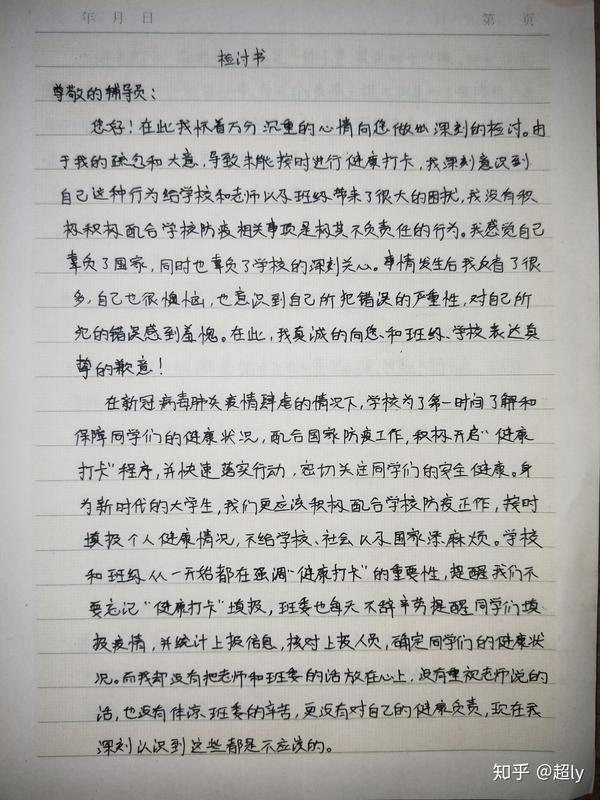 年 月 日 第 页
检讨书
尊敬的辅导员：
您好！在此我怀着万分沉重的心情向您做出深刻的检讨。由
于我的疏忽和大意，导致未能按时进行健康打卡，我深刻意识到
自己这种行为给学校和老师以及班级带来了很大的困扰，我没有积
极积极配合学校防疫相关事项是极其不负责任的行为。我感觉自己
辜负了国家，同时也辜负了学校的深刻关心。事情发生后我反省了很
多，自己也很懊恼，也意识到自己所犯错误的严重性，对自己所
犯的错误感到羞愧。在此，我真诚的向您、和班级、学校表达真
挚的歉意！
在新冠病毒肺炎疫情肆虐的情况下，学校为了第一时间了解和
保障同学们的健康状况，配合国家防疫工作，积极开启“健康
打卡”程序，并快速落实行动，密切关注同学们的安全健康。身
为新时代的大学生，我们更应该积极配合学校防疫工作，按时
填报个人健康情况，不给学校、社会以及国家添麻烦。学校
和班级从一开始都在强调“健康打卡”的重要性，提醒我们不
要忘记“健康打卡”填报，班委也每天不辞辛劳提醒同学们填
报疫情，并统计上报信息，核对上报人员，确定同学们的健康状
况。而我却没有把老师和班委的话放在心上，没有重视老师说的
话，也没有体谅班委的辛苦，更没有对自己的健康负责，现在我
深刻认识到这些都是不应该的。
知乎 @超ly